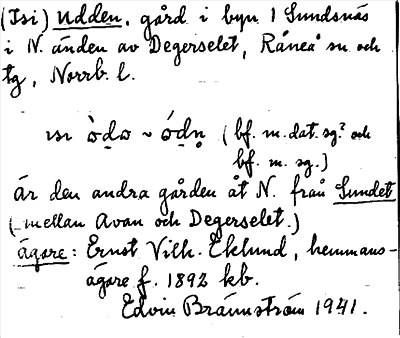 (Isi) Udden, gård i byn 1 Sundsnäs
i N. änden av Degerselet, Råneå sn och
tg, Norrb. l.
ısı ò̀dɷ ~ ódn̥ (bf. m. dat. sg.? och
bf. m. sg.)
Är den andra gården åt N. från Sundet
(mellan Avan och Degerselet.)
ägare: Ernst Vilh. Eklund, hemmans-
ägare f. 1892 kb.
Edvin Brännström 1941.